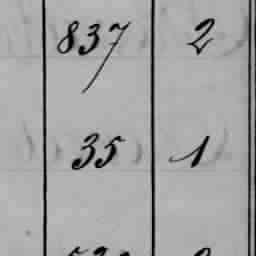 837 2
35 1